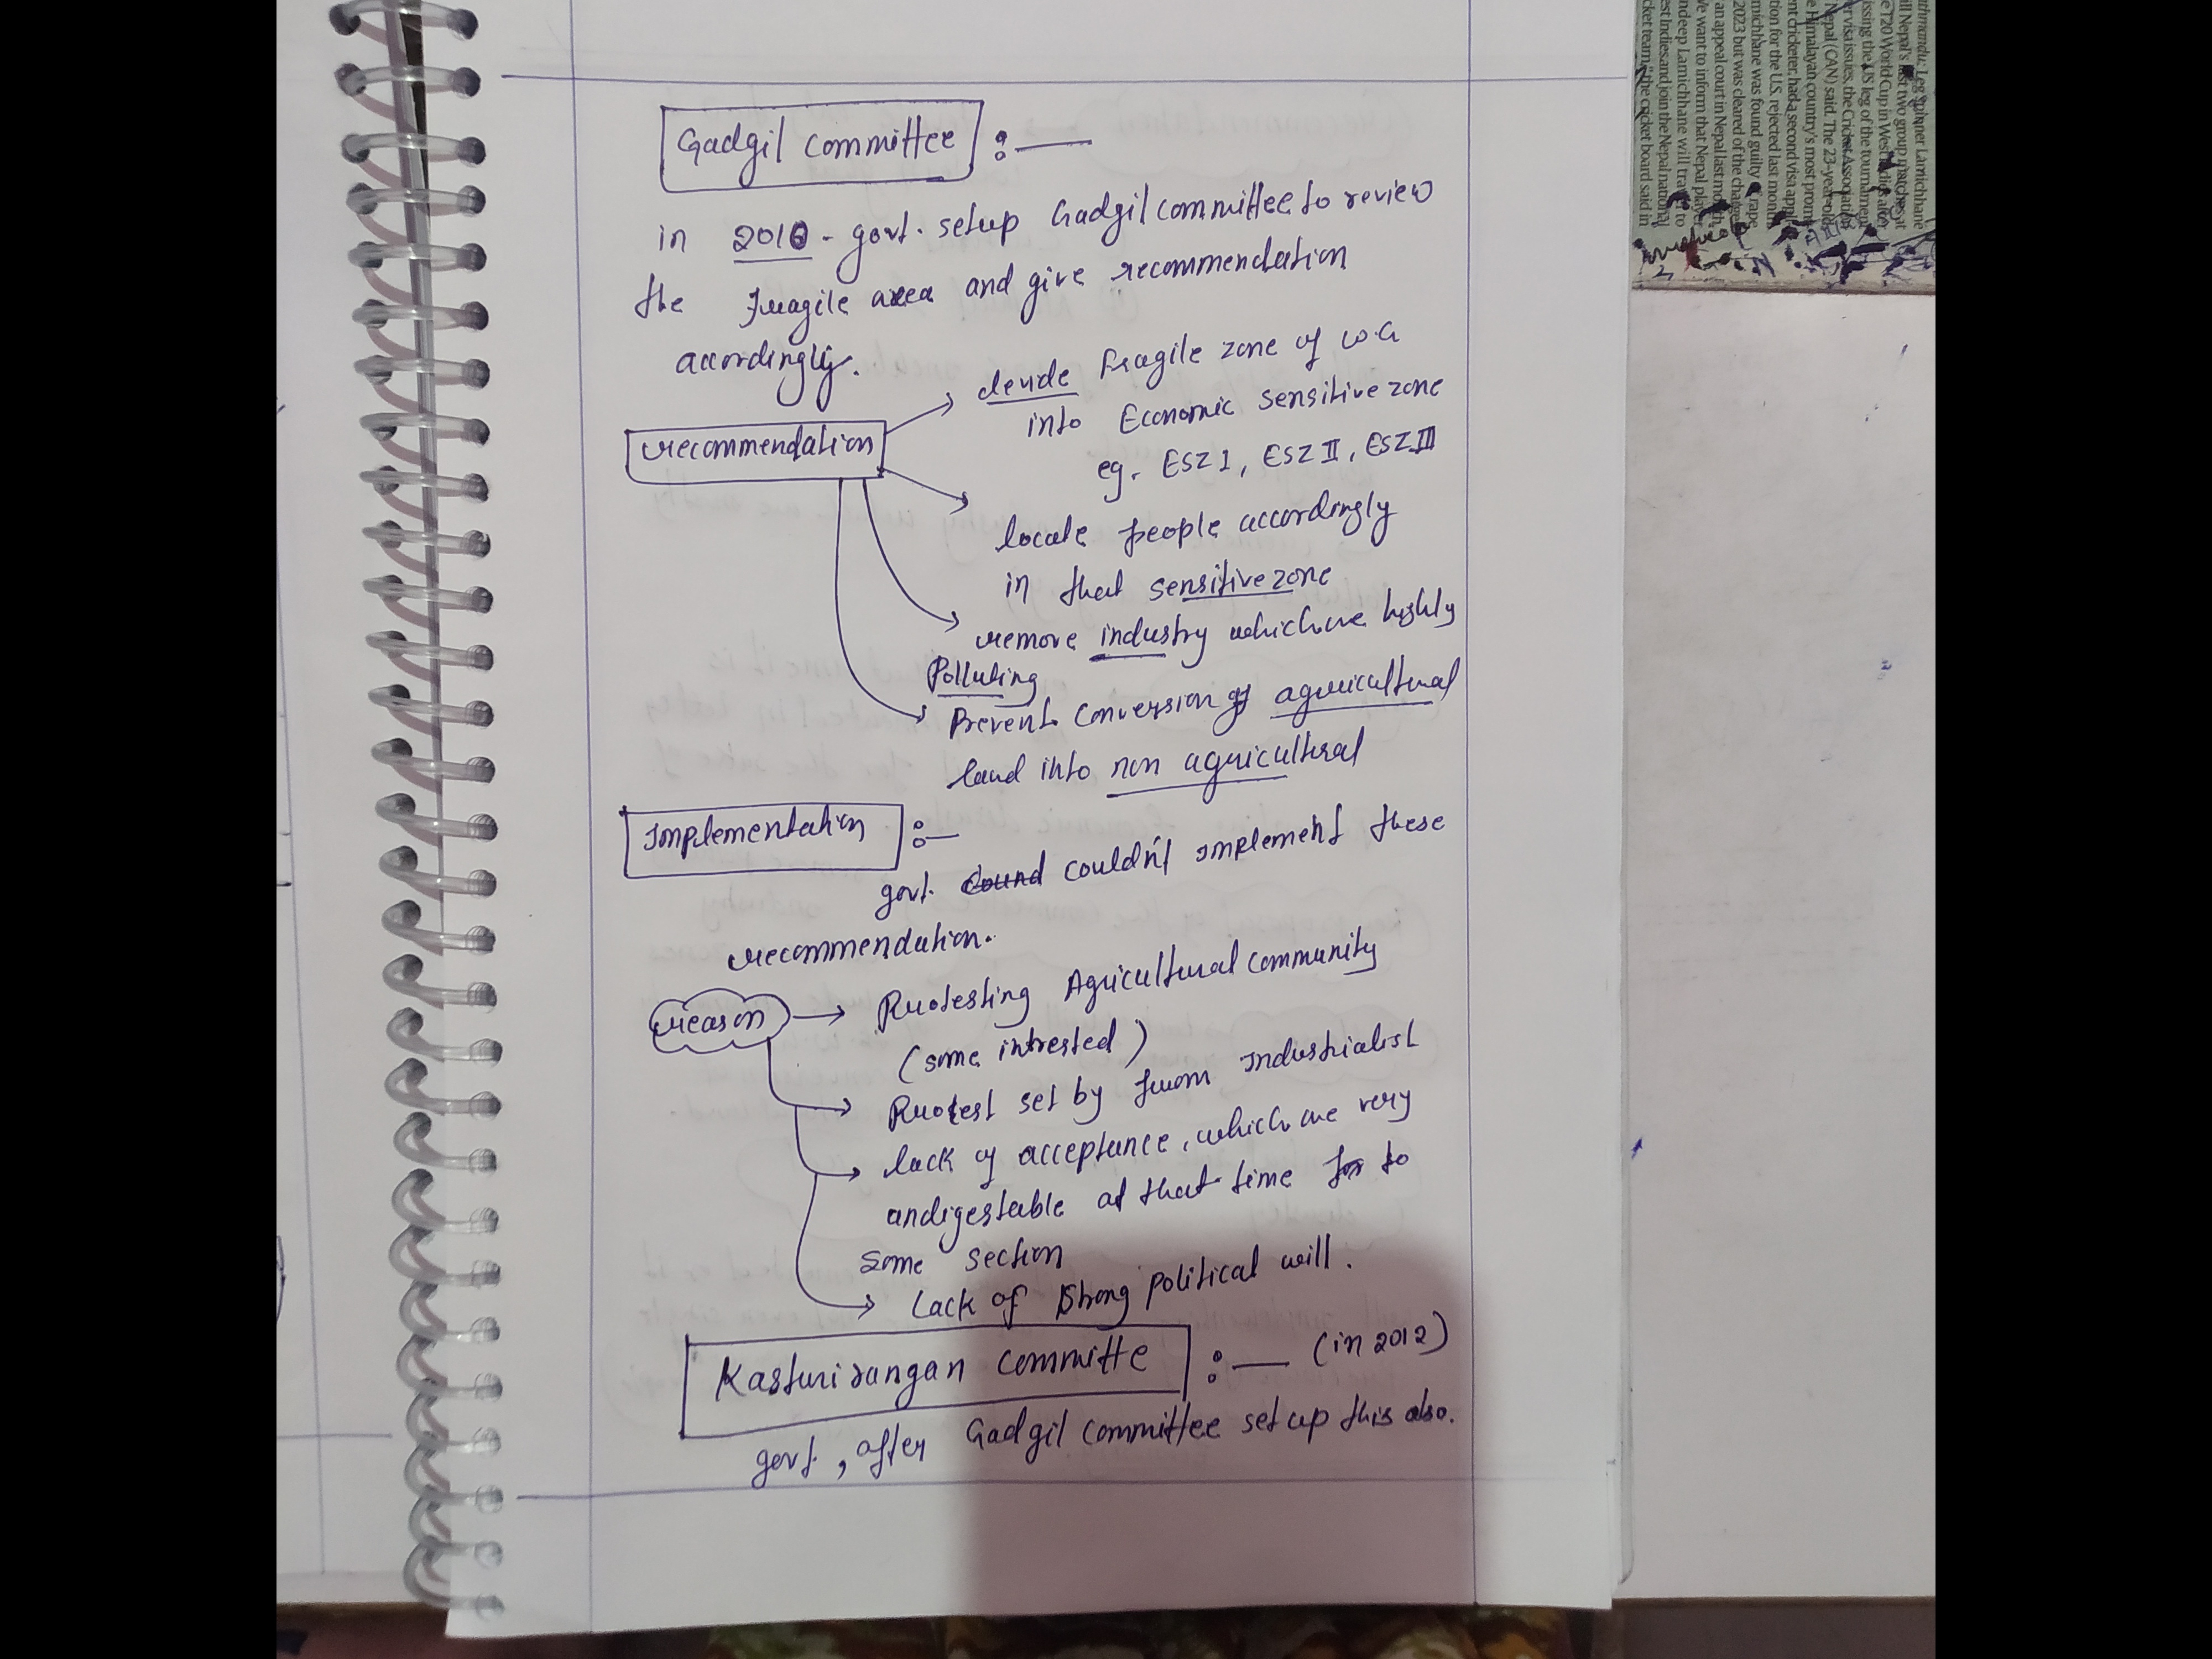 Gadgil committee :—
in 2010 - govt. setup Gadgil committee to review
the fragile area and give recommendation
accordingly.
recommendation
devide Fragile zone of W.G
into Economic sensitive zone
eg. ESZ I, ESZ II, ESZ III
locate people accordingly
in that sensitive zone
remove industry which are highly
Polluting
Prevent conversion of agricultural
land into non agricultural
Implementation :—
govt. couldn't implement these
recommendation.
reason
Protesting Agricultural community
(some intrested)
Protest set by from industrialist
lack of acceptance, which are very
andigestable at that time to
some section
Lack of strong political will.
Kasturirangan committe :— (in 2012)
govt, after Gadgil committee set up this also.
athmandu: Leg Spinner Lamichhane
ill Nepal's last two group matches at
e T20 World Cup in West Indies after
issing the US leg of the tournament
ver visa issues, the Cricket Association
Nepal (CAN) said. The 23-year-old
e Himalayan country's most promi
ent cricketer, had a second visa app
tion for the U.S. rejected last mon
michhane was found guilty of rape
2023 but was cleared of the charge
an appeal court in Nepal last month
We want to inform that Nepal player
ndeep Lamichhane will travel to
est Indies and join the Nepal national
cket team," the cricket board said in